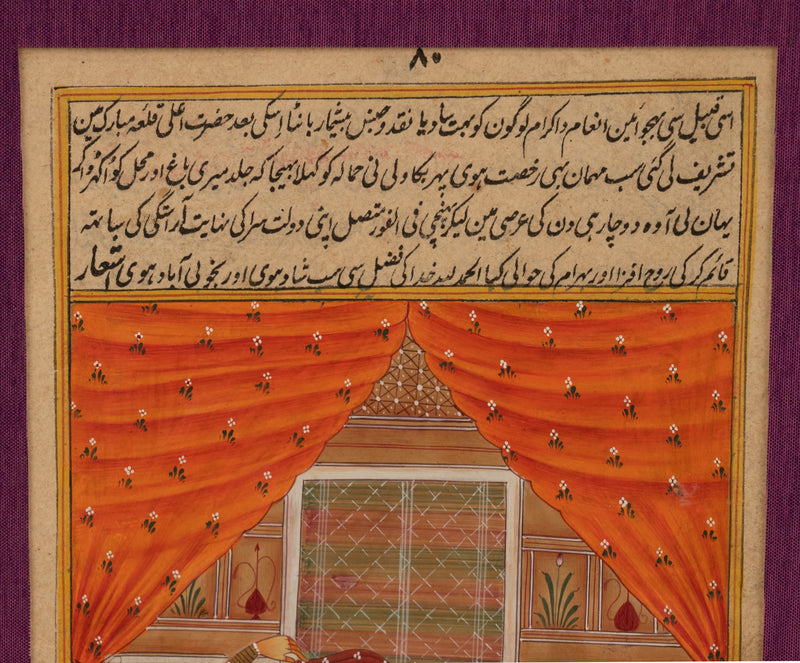 ۸۰
اسی قبیل سی بھجوائین انعام و اکرام لوگون کو بہت سا دیا نقد و جنس بیشمار بانٹا اسکی بعد حضرت اعلی قلعہ مبارک مین
تشریف لی گئی سب مہمان بہی رخصت ہوی پہر بکاولی نی حمالہ کو کہلا بہیجا کہ جلد میری باغ اور محل کو اکہڑوا کر
یہان لی آ وہ دو چار ہی دن کی عرصی مین لیکر پہنچی فی الفور متصل اپنی دولت سرا کی نہایت آراستگی کی ساتہہ
قائم کر کی روح افزا اور بہرام کی حوالی کیا الحمد للہ خدا کی فضل سی سب شاد ہوی اور بخوبی آباد ہوی اشعار